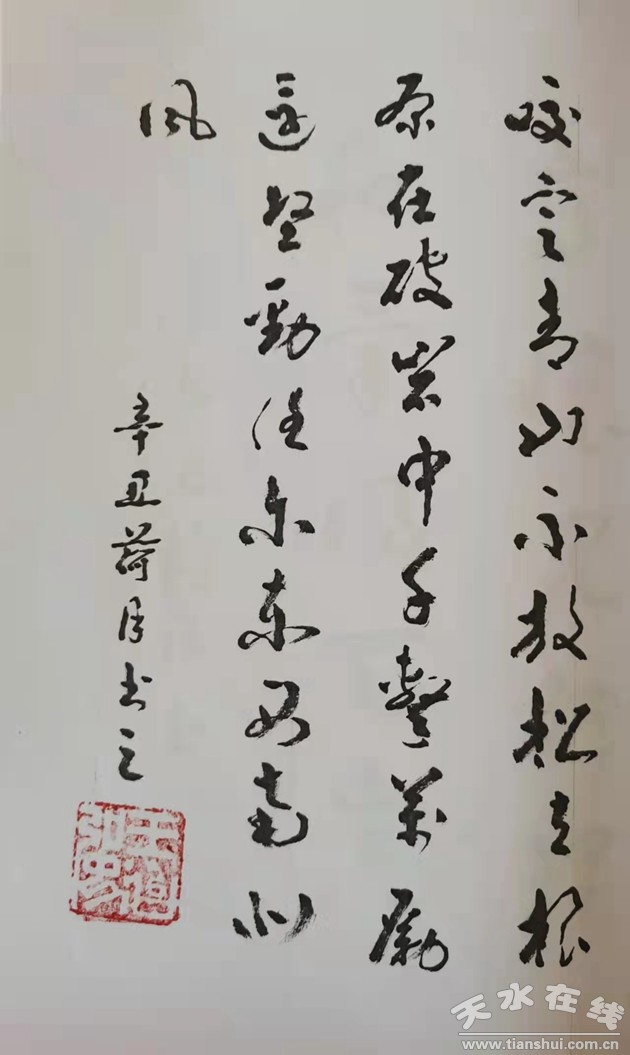 咬定青山不放松立根
原在破岩中千擊萬
還堅勁任尔东西南北
风
辛丑荷月书之
天水在线
www.tianshui.com.cn